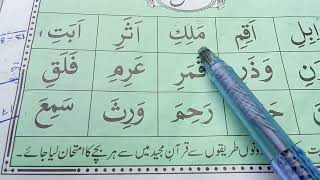 ابِلِ اَقِمِ مَلِكِ اَثَرِ اَبَتِ
وَذَرِ قَمَرِ عَرِمِ فَلَقِ
رَحِمَ وَرِثَ سَمِعَ
دونوں طریقوں سے قرآنِ مجید میں سے ہر بچے کا امتحان لیا جائے۔